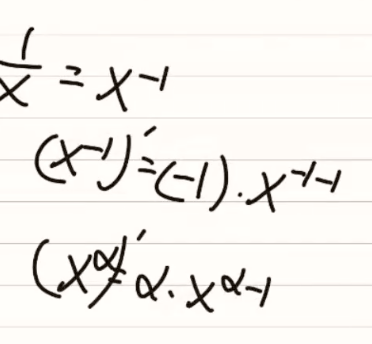 1/x = x⁻¹
(x⁻¹)' = (-1) · x⁻¹⁻¹
(x^α)' = α · x^(α-1)